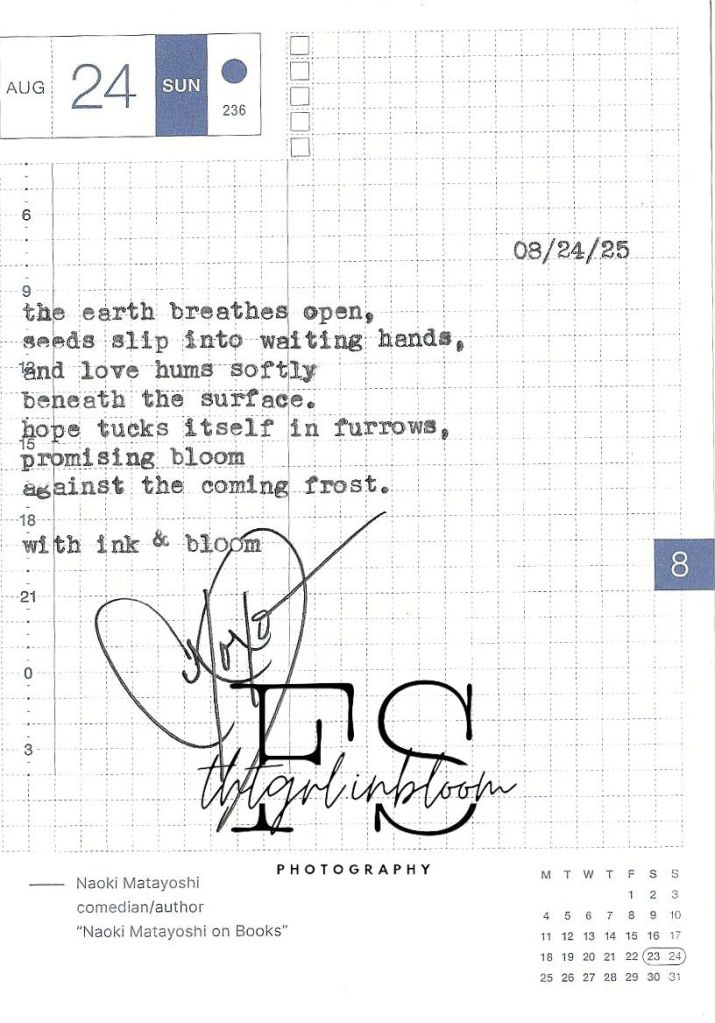 AUG 24 SUN 236
6
08/24/25
9
the earth breathes open,
seeds slip into waiting hands,
12
and love hums softly
beneath the surface.
hope tucks itself in furrows,
15
promising bloom
against the coming frost.
18
with ink & bloom
8
21
0
3
FS
thtgrlinbloom
PHOTOGRAPHY
Naoki Matayoshi
comedian/author
“Naoki Matayoshi on Books”
M T W T F S S
1 2 3
4 5 6 7 8 9 10
11 12 13 14 15 16 17
18 19 20 21 22 23 24
25 26 27 28 29 30 31